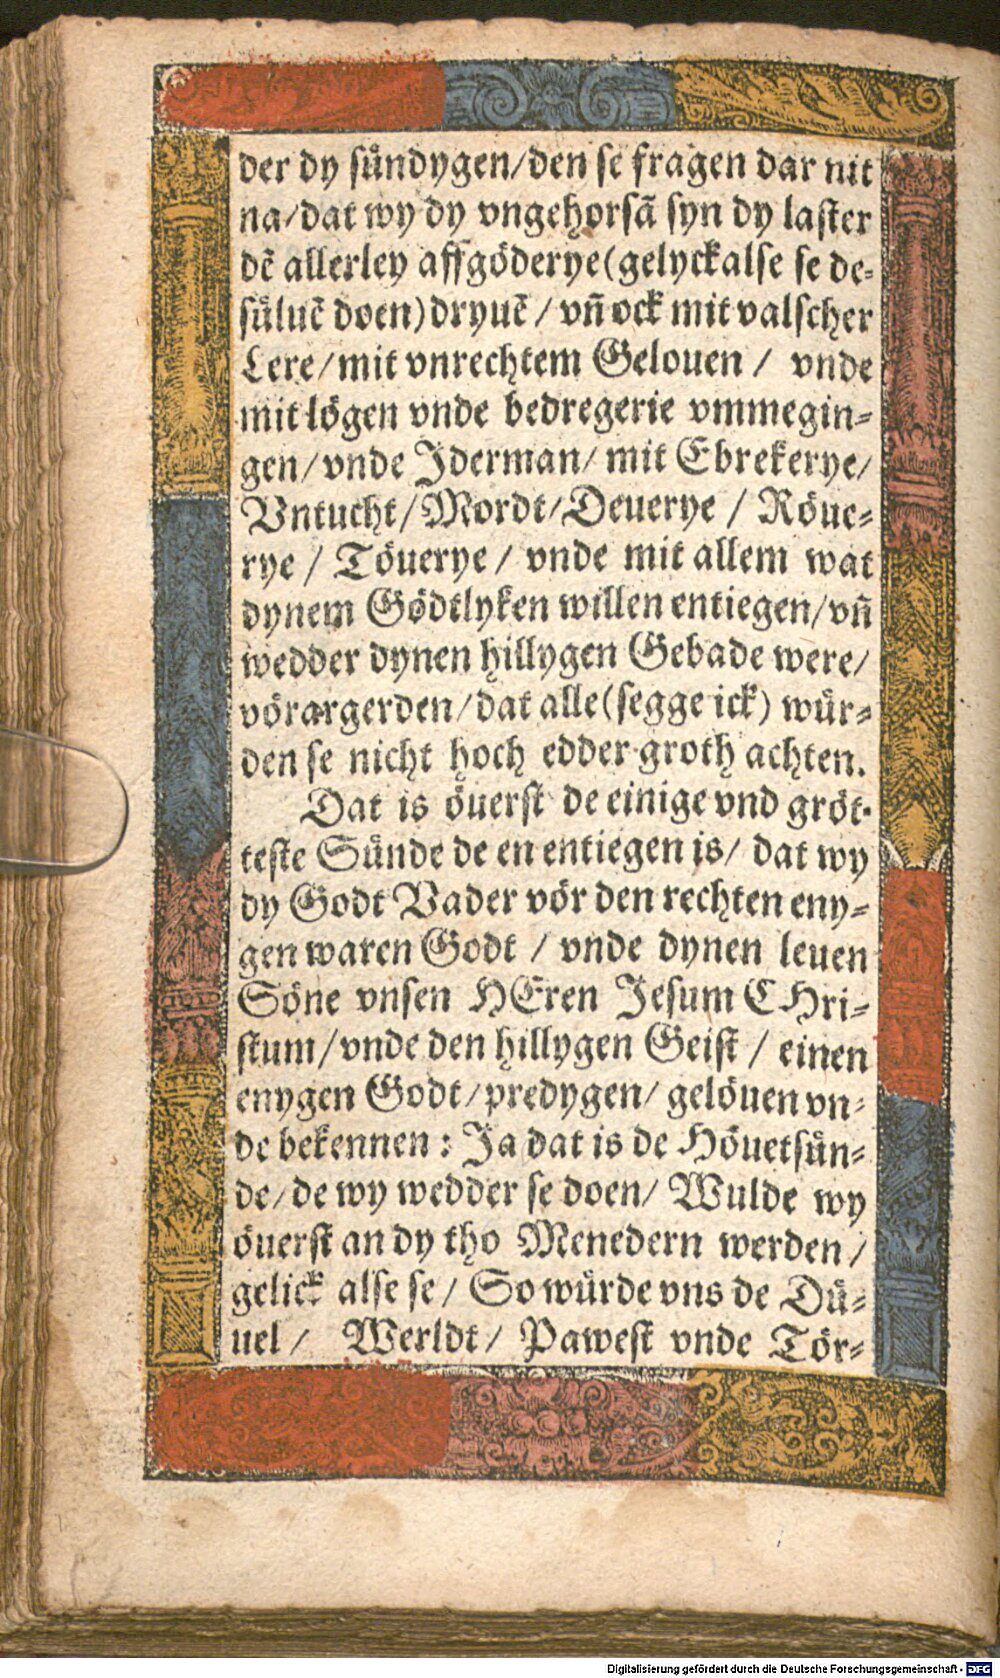 der dy sündygen/den se fragen dar nit
na/dat wy dy vngehorsã syn dy laster
dẽ allerley affgöderye(gelyckalse se de-
süluẽ doen)dryuẽ / vñ ock mit valscher
Lere/mit vnrechtem Gelouen / vnde
mit lögen vnde bedregerie vmmegin-
gen/vnde Jderman/ mit Ebrekerye/
Vntucht/Mordt/Deuerye / Röue-
rye / Töuerye / vnde mit allem wat
dynem Gödtlyken willen entiegen/vñ
wedder dynen hillygen Gebade were/
vörargerden/dat alle(segge ick) wür-
den se nicht hoch edder groth achten.
Dat is öuerst de einige vnd gröt-
teste Sünde de en entiegen is/ dat wy
dy Godt Vader vör den rechten eny-
gen waren Godt / vnde dynen leuen
Söne vnsen HEren Jesum CHri-
stum/vnde den hillygen Geist / einen
enygen Godt/predygen/ gelöuen vn-
de bekennen : Ja dat is de Höuetsün-
de/de wy wedder se doen/ Wulde wy
öuerst an dy tho Menedern werden /
gelick alse se / So würde vns de Dü-
uel / Werldt/ Pawest vnde Tör-
Digitalisierung gefördert durch die Deutsche Forschungsgemeinschaft - DFG